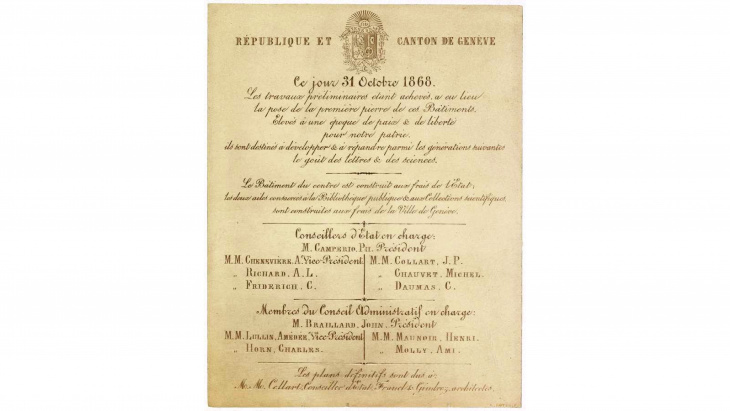 RÉPUBLIQUE ET CANTON DE GENÈVE
Ce jour 31 Octobre 1868.
Les travaux préliminaires étant achevés, a eu lieu
la pose de la première pierre de ces Bâtiments.
Elevés à une époque de paix & de liberté
pour notre patrie,
ils sont destinés à développer & à répandre parmi les générations suivantes
le goût des lettres & des sciences.
Le Bâtiment du centre est construit aux frais de l'Etat;
les deux ailes consacrées à la Bibliothèque publique & aux Collections scientifiques,
sont construites aux frais de la Ville de Genève.
Conseillers d'Etat en charge:
M. CAMPERIO, PH. Président
M.M. CHENEVIÈRE, A. Vice-Président M.M. COLLART, J.P.
„ RICHARD, A.L. „ CHAUVET, MICHEL.
„ FRIDERICH, C. „ DAUMAS, C.
Membres du Conseil Administratif en charge:
M. BRAILLARD, JOHN, Président
M.M. LULLIN, AMÉDÉE, Vice-Président M.M. MAUNOIR, HENRI.
„ HORN, CHARLES. „ MOLLY, AMI.
Les plans définitifs sont dus à:
M.M. Collart, Conseiller d'Etat, Franel & Gindroz, architectes.